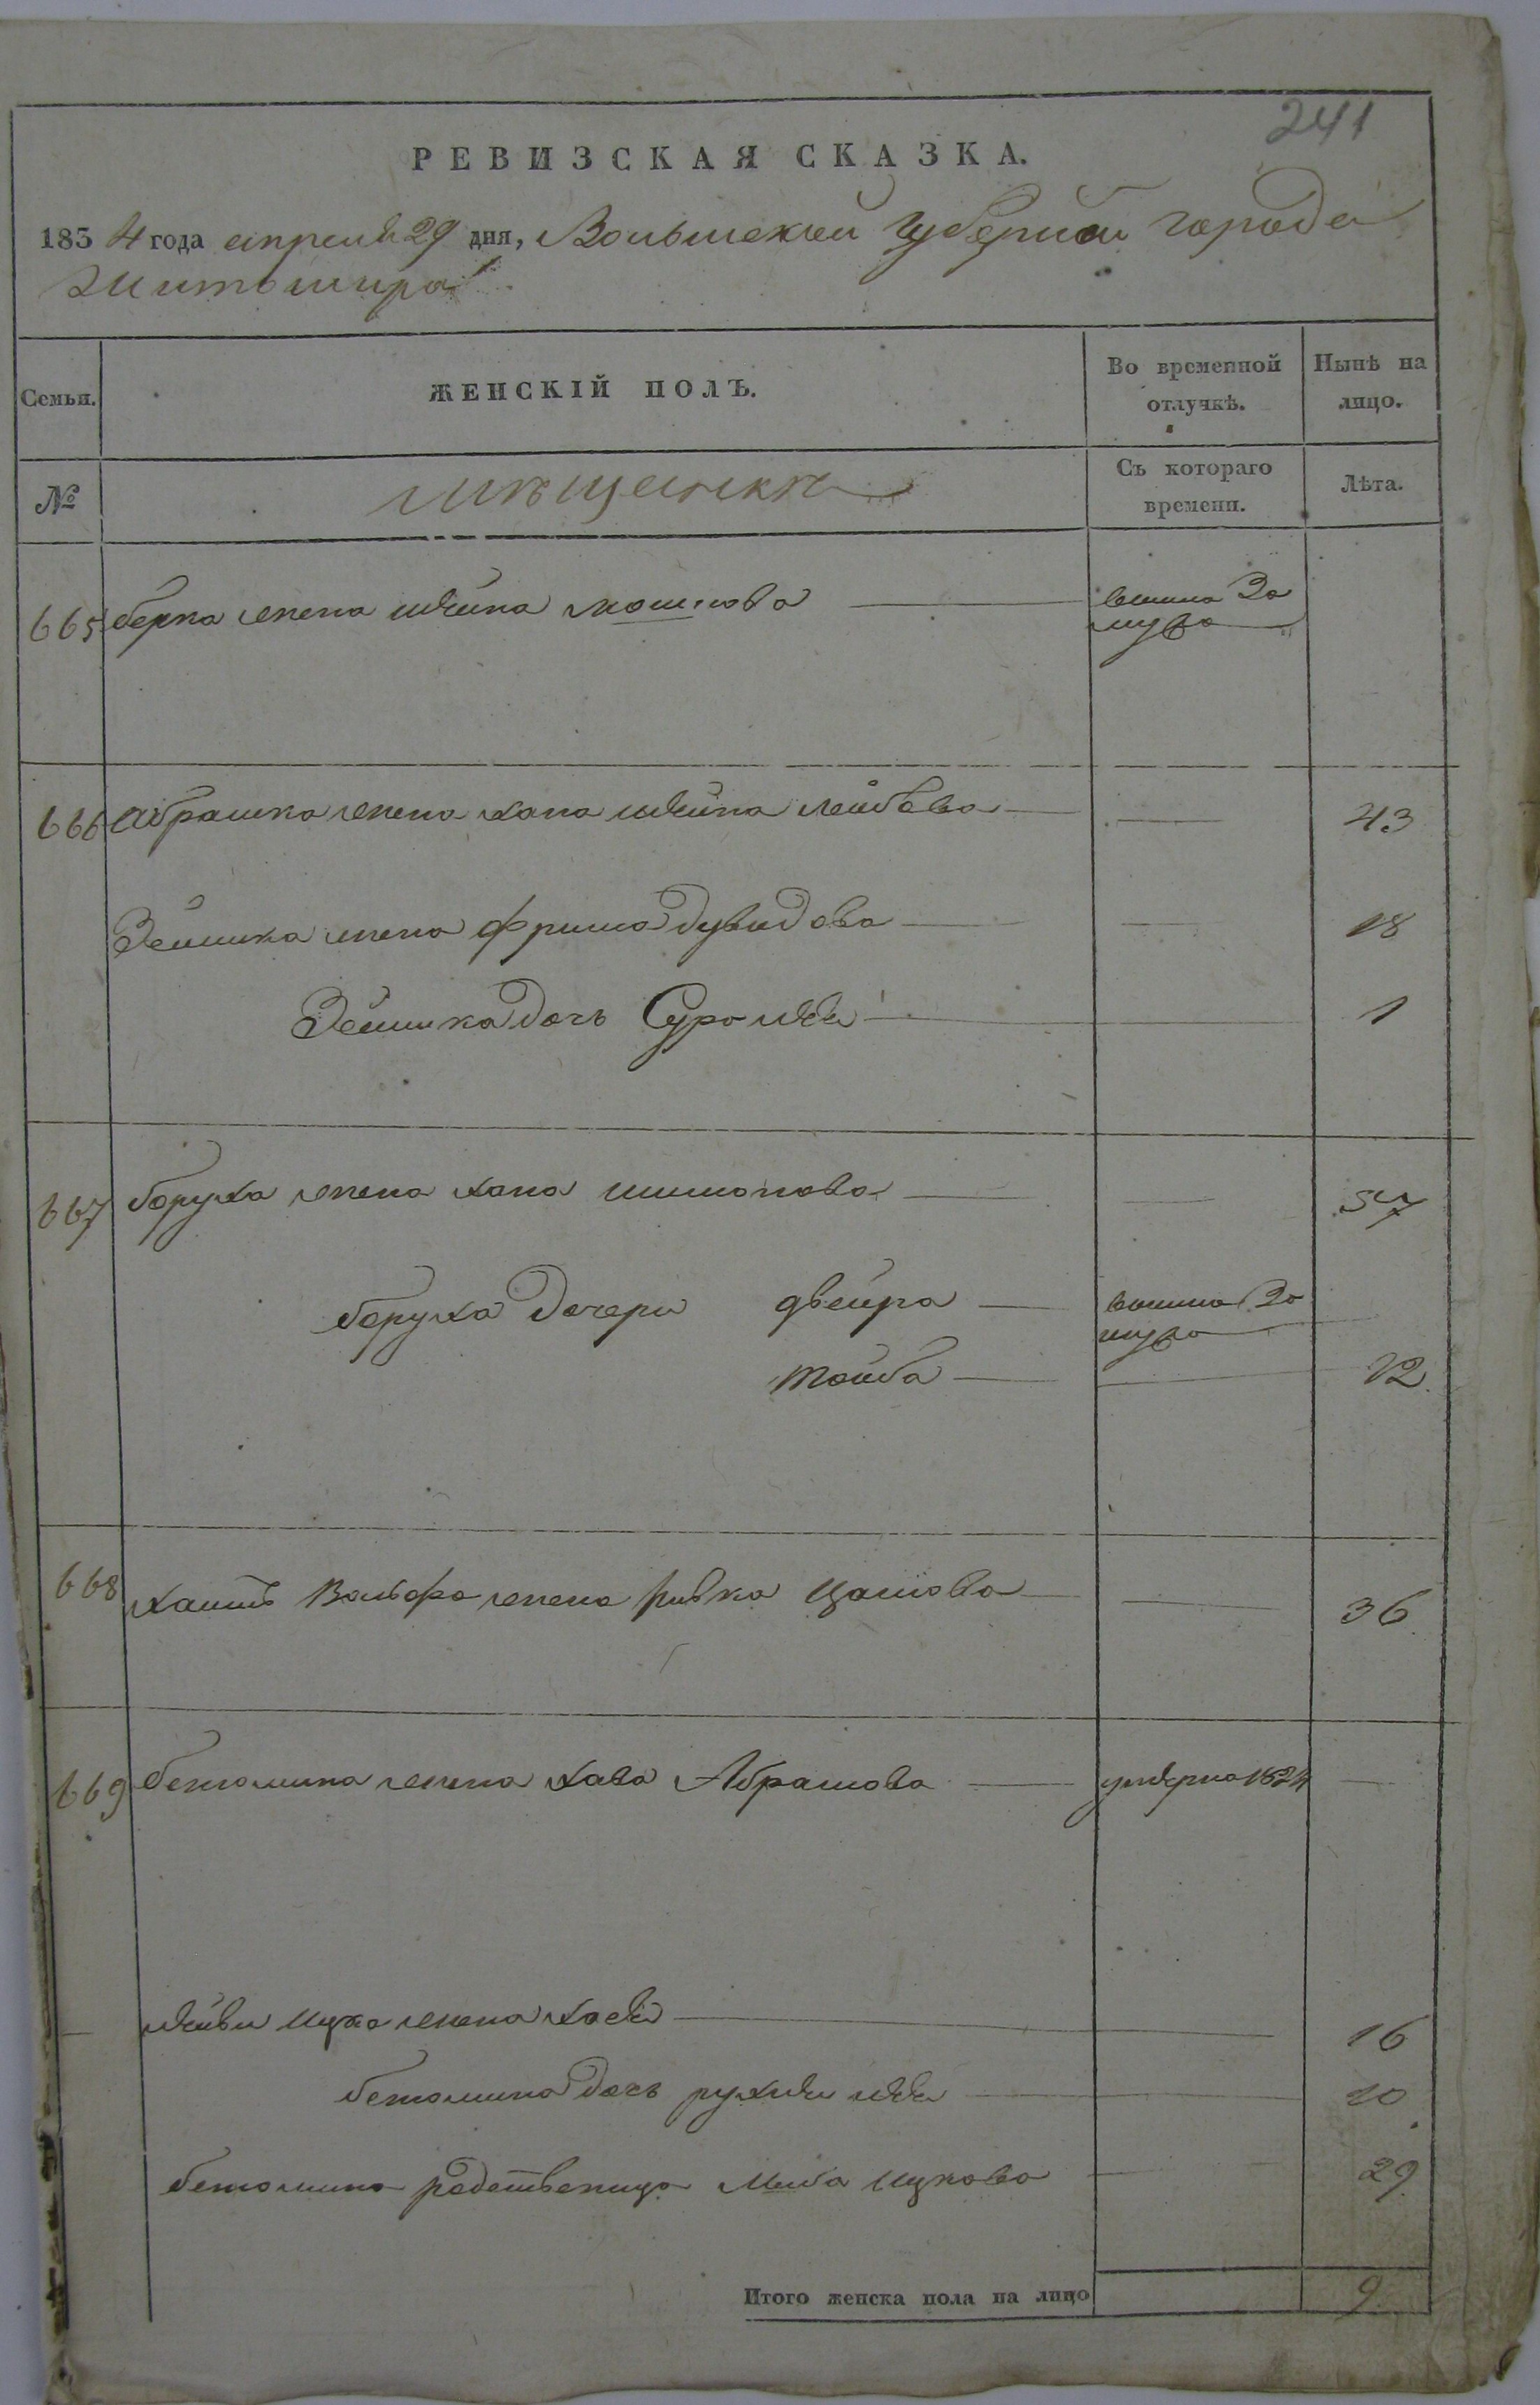 241
РЕВИЗСКАЯ СКАЗКА.
1834 года апреля 29 дня, Волынской Губернии города
Житомира
Семьи. ЖЕНСКІЙ ПОЛЪ. Во временной отлучкѣ. Нынѣ на лицо.
№ мѣщанки Съ котораго времени. Лѣта.
665 берка жена шейна мошкова вышла За
мужа
666 Абрашка жена хана шейна лейбова 43
Зейлика жена фрима дувидова 18
Зейлика дочь Сура 1
667 боруха жена хана шимонова 57
боруха дочери двейра вышла За
мужа
тойба 12
668 Вольфа жена ривка 36
669 бенюмина жена хава Абрамова умерла 1824
ицка жена хая 16
бенюмина дочь рухля 10
бенюмина родственица ицкова 29
Итого женска пола на лицо 9